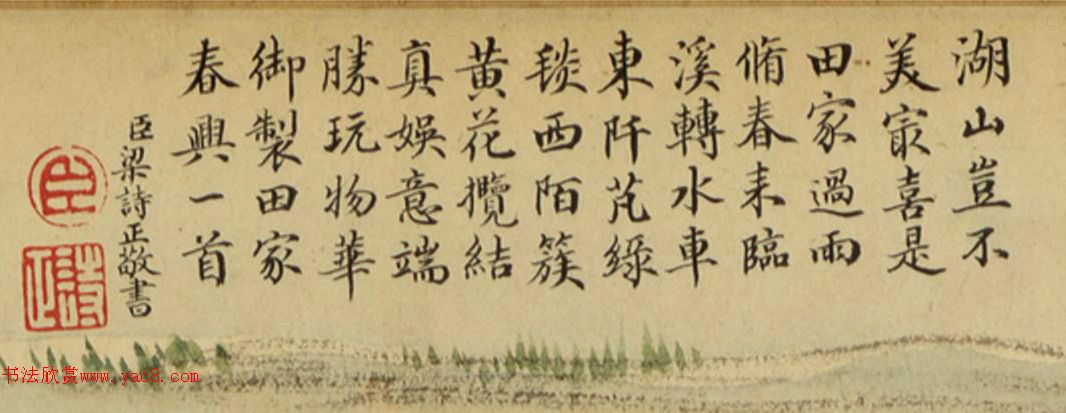 湖山豈不
美㝡喜是
田家過雨
脩春耒臨
溪轉水車
東阡芃綠
毯西陌簇
黄花攬結
真娛意端
勝玩物華
御製田家
春興一首
臣梁詩正敬書
臣
詩正
书法欣赏www.yac8.com